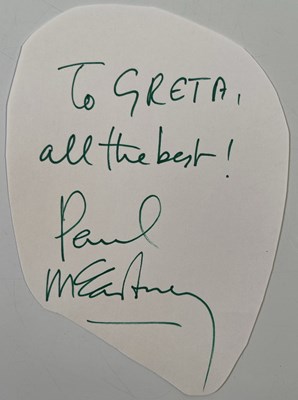 To GRETA,
all the best!
Paul
McCartney